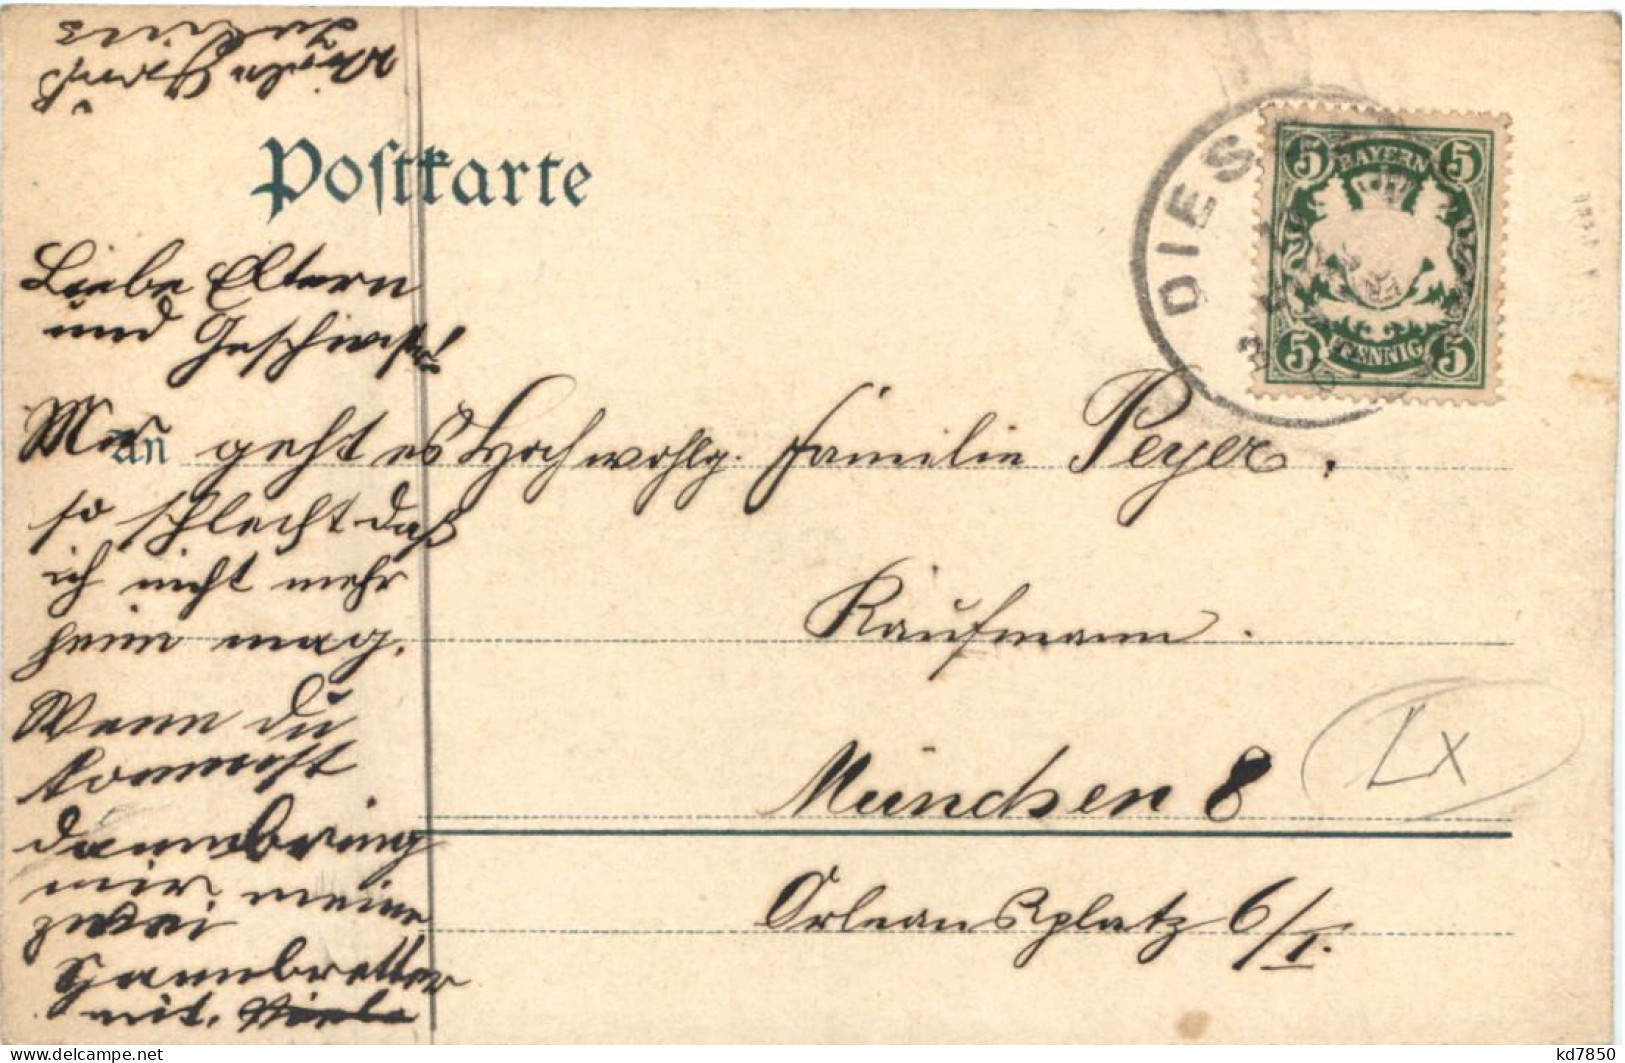 Viele Grüße
Postkarte
DIES
BAYERN
5 5
PFENNIG
5 5
Liebe Eltern
und Geschwister!
Mir geht es
so schlecht daß
ich nicht mehr
heim mag.
Wenn du
kommst
dann bring
mir meine
zwei
mit. Viele
An Hochwohlg. Familie Peyer,
Kaufmann.
München 8
Orleansplatz 6/I.
Lx
kd7850